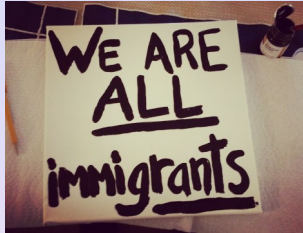 WE ARE
ALL
immigrants.